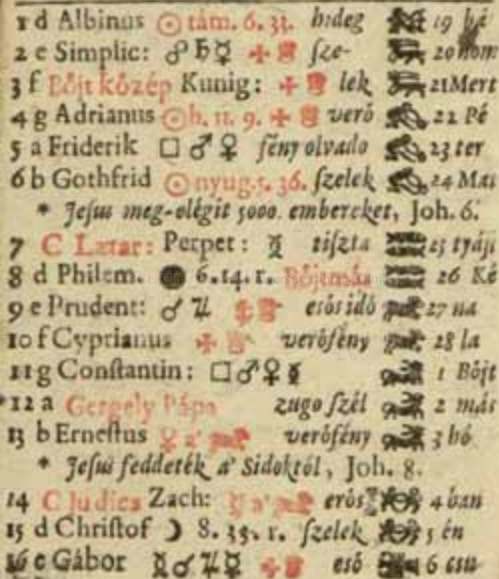 1 d Albinus ☉ tám. 6. 31. hideg 19 há
2 e Simplic: ☍ ♄ ☿ ✠ ſze- 20 hom
3 f Bőjt kőzép Kunig: ✠ lek 21 Mert
4 g Adrianus ☉ h. 11. 9. ✠ verő 22 Pé
5 a Friderik □ ♂ ♀ fény olvado 23 ter
6 b Gothfrid ☉ nyug. 5. 36. ſzelek 24 Mat
* Jeſus meg-elégit 5000. embereket, Joh. 6.
7 C Lætar: Perpet: tiſzta 25 tyáj
8 d Philem. ● 6. 14. r. Bőjtmás 26 Ké
9 e Prudent: ☌ ♃ esős idő 27 na
10 f Cyprianus ✠ verőfény 28 la
11 g Conſtantin: □ ♂ ♀ 1 Bőjt
*12 a Gergely Pápa zugo ſzél 2 már
13 b Erneſtus ♀ a' verőfény 3 hó
* Jeſus feddeték a' Sidoktól, Joh. 8.
14 C Judica Zach: a' erős 4 ban
15 d Chriſtof ☽ 8. 35. r. ſzelek 5 én
16 e Gábor ☌ ♃ ☿ ✠ eső 6 csu